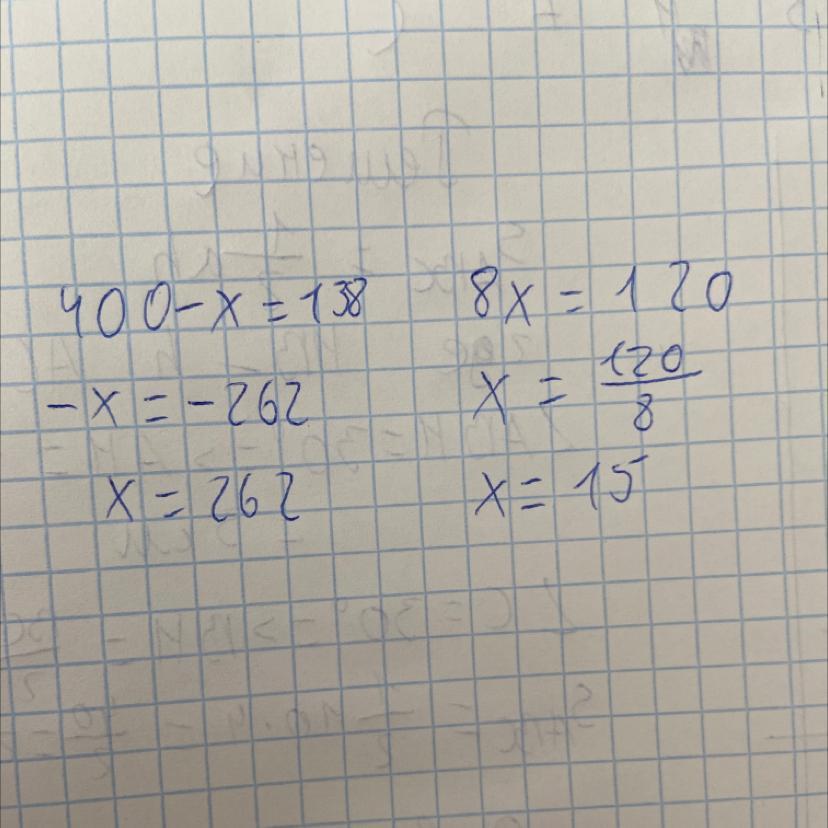 400-x=138
-x=-262
x=262
8x=120
x=120/8
x=15